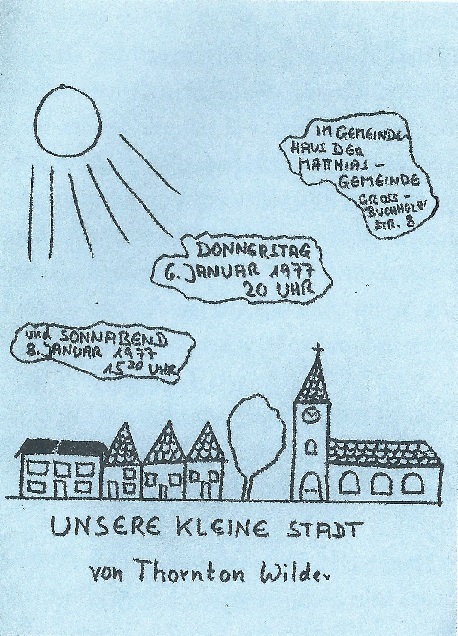 IM GEMEINDE-
HAUS DER
MATTHIAS-
GEMEINDE
GROSS-
BUCHHOLZER
STR. 8
DONNERSTAG
6. JANUAR 1977
20 UHR
und SONNABEND
8. JANUAR 1977
15³⁰ UHR
UNSERE KLEINE STADT
von Thornton Wilder